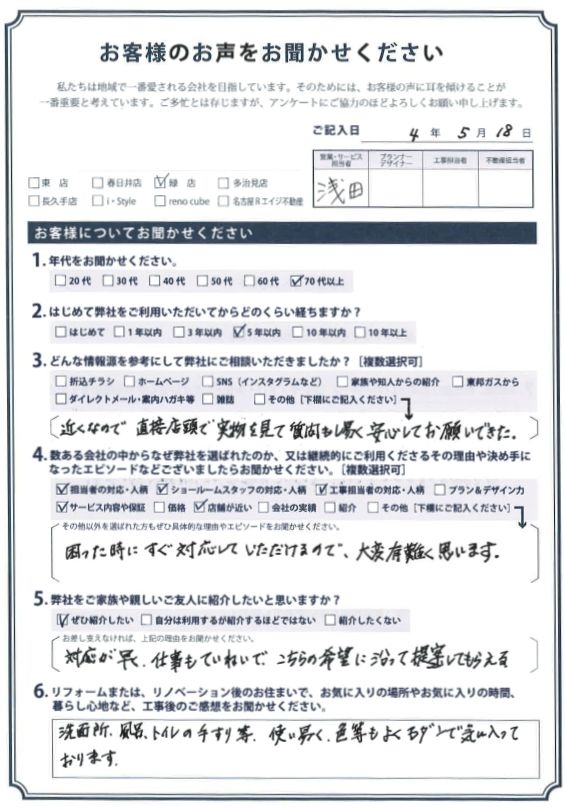 お客様のお声をお聞かせください
私たちは地域で一番愛される会社を目指しています。そのためには、お客様の声に耳を傾けることが
一番重要と考えています。ご多忙とは存じますが、アンケートにご協力のほどよろしくお願い申し上げます。
ご記入日 4 年 5 月 18 日
営業・サービス担当者 プランナーデザイナー 工事担当者 不動産担当者
浅田
□東 店 □春日井店 ☑緑 店 □多治見店
□長久手店 □i・Style □reno cube □名古屋Rエイジ不動産
お客様についてお聞かせください
1. 年代をお聞かせください。
□20代 □30代 □40代 □50代 □60代 ☑70代以上
2. はじめて弊社をご利用いただいてからどのくらい経ちますか？
□はじめて □1年以内 □3年以内 ☑5年以内 □10年以内 □10年以上
3. どんな情報源を参考にして弊社にご相談いただきましたか？［複数選択可］
□折込チラシ □ホームページ □SNS（インスタグラムなど） □家族や知人からの紹介 □東邦ガスから
□ダイレクトメール・案内ハガキ等 □雑誌 □その他［下欄にご記入ください］
近くなので 直接店頭で実物を見て質問もし易く安心してお願いできた。
4. 数ある会社の中からなぜ弊社を選ばれたのか、又は継続的にご利用くださるその理由や決め手に
なったエピソードなどございましたらお聞かせください。［複数選択可］
☑担当者の対応・人柄 ☑ショールームスタッフの対応・人柄 ☑工事担当者の対応・人柄 □プラン＆デザイン力
☑サービス内容や保証 □価格 ☑店舗が近い □会社の実績 □紹介 □その他［下欄にご記入ください］
その他以外を選ばれた方もぜひ具体的な理由やエピソードをお聞かせください。
困った時にすぐ対応していただけるので、大変有難く思います。
5. 弊社をご家族や親しいご友人に紹介したいと思いますか？
☑ぜひ紹介したい □自分は利用するが紹介するほどではない □紹介したくない
お差し支えなければ、上記の理由をお聞かせください。
対応が早く、仕事もていねいで、こちらの希望に沿って提案してもらえる
6. リフォームまたは、リノベーション後のお住まいで、お気に入りの場所やお気に入りの時間、
暮らし心地など、工事後のご感想をお聞かせください。
洗面所、風呂、トイレの手すり等、使い易く、色等もよくモダンで気に入って
おります。